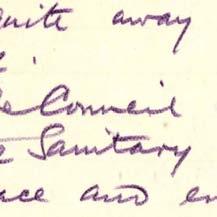 quite away
Council
Sanitary
and